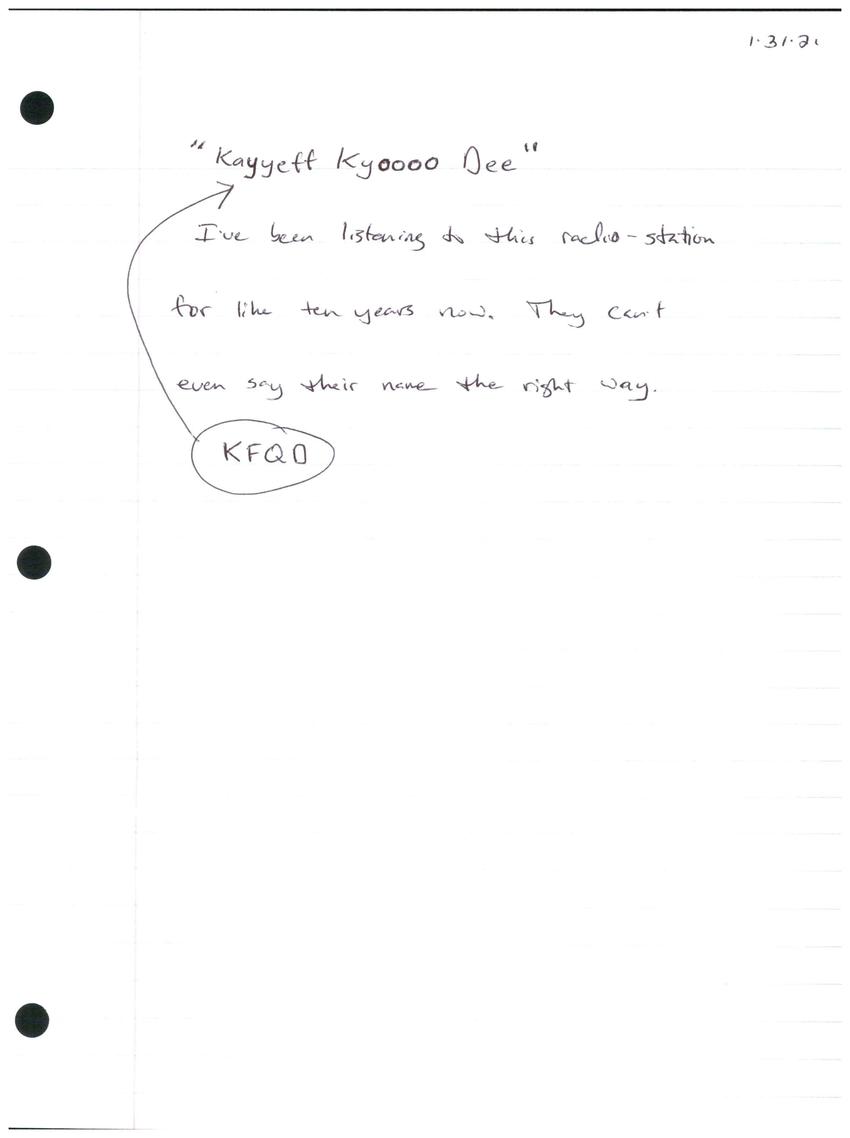 1.31.21
"Kayyeff Kyoooo Dee"
I've been listening to this radio-station
for like ten years now. They can't
even say their name the right way.
KFQD